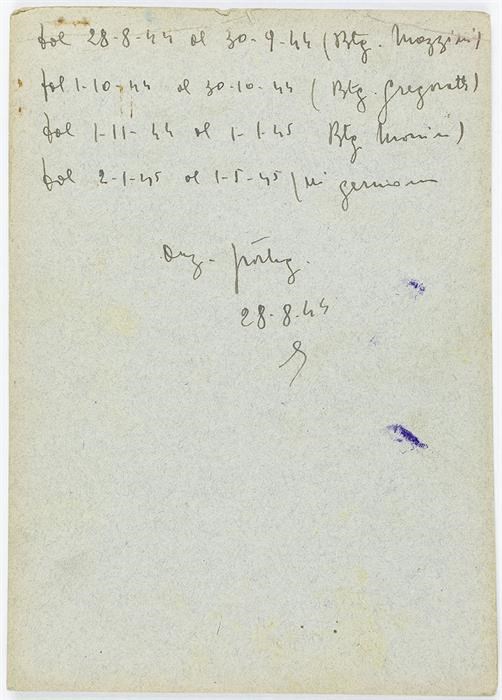 dal 28-8-44 al 30-9-44 (Btg. Mazzini)
dal 1-10-44 al 30-10-44 (Btg. Gregoratti)
dal 1-11-44 al 1-1-45 Btg Manin)
dal 2-1-45 al 1-5-45 (
28-8-44